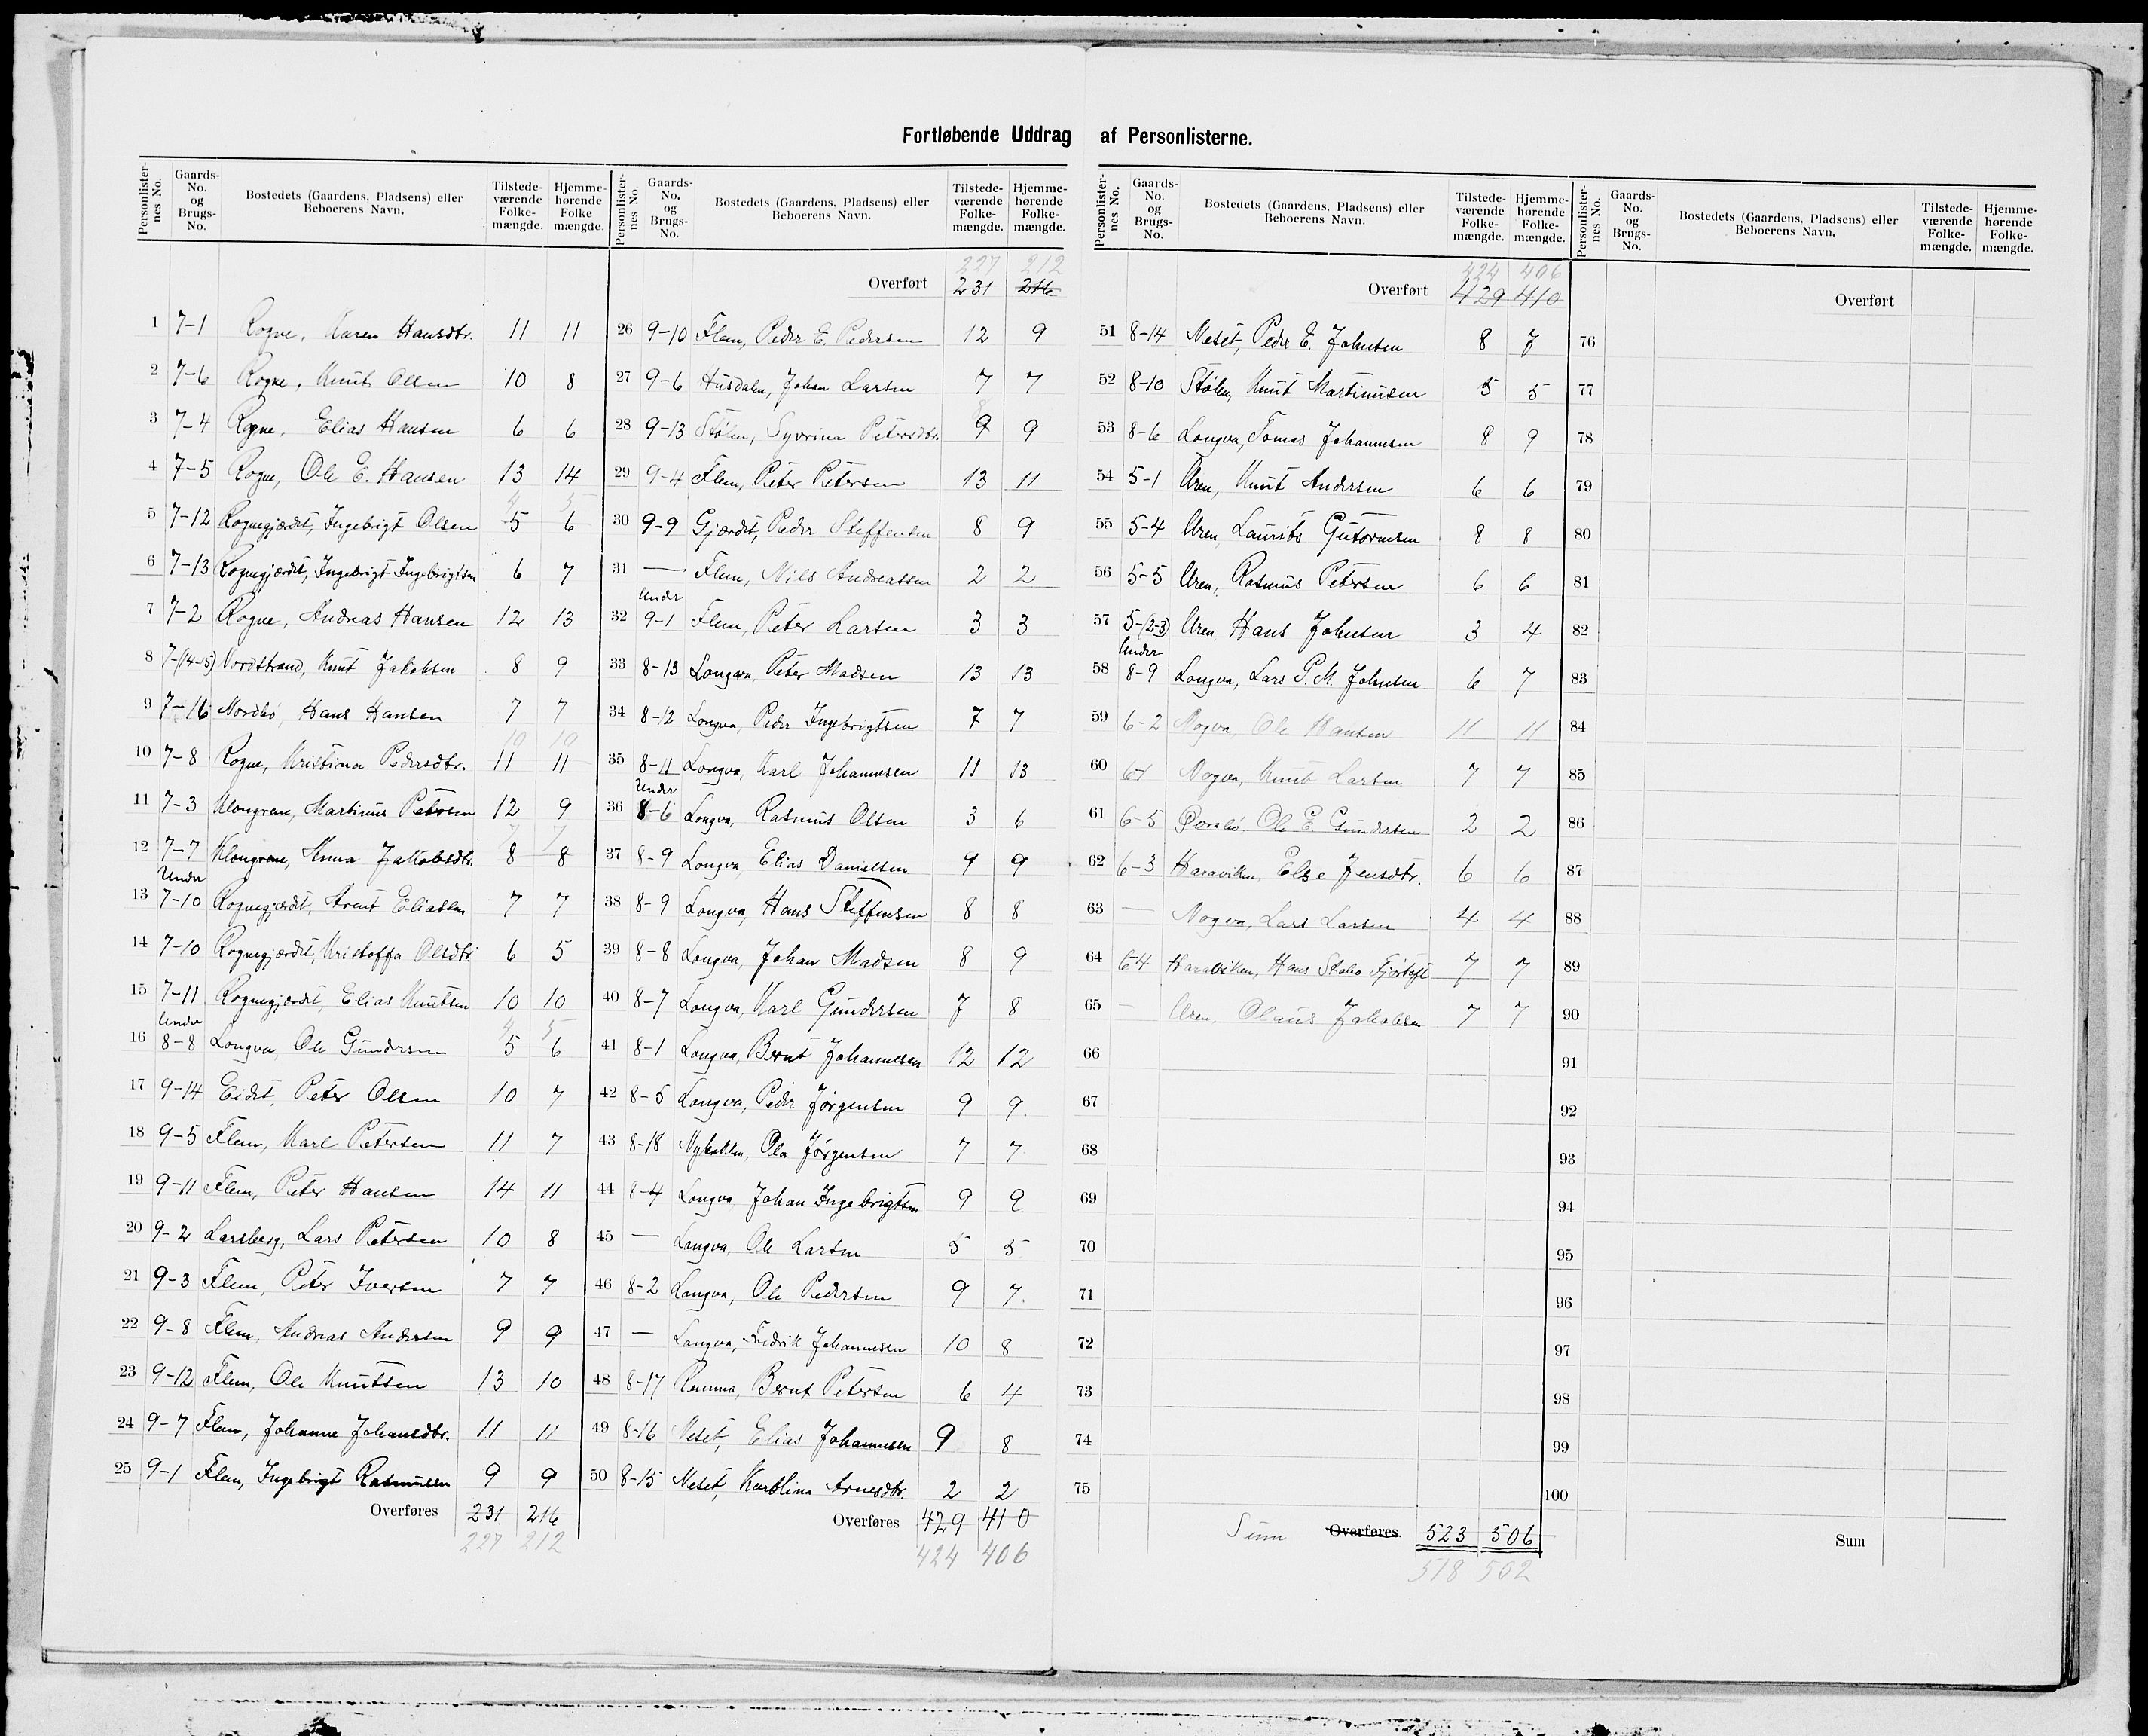 Fortløbende Uddrag af Personlisterne.
Personlisternes No. Gaards-No. og Brugs-No. Bostedets (Gaardens, Pladsens) eller Beboerens Navn. Tilstedeværende Folkemængde. Hjemmehørende Folke mængde.
1 7-1 Rogne, Karen Hansdtr. 11 11
2 7-6 Rogne, Knut Olsen 10 8
3 7-4 Rogne, Elias Hansen 6 6
4 7-5 Rogne, Ole E. Hansen 13 14
4 5
5 7-12 Rognegjærdet, Ingebrigt Olsen 5 6
6 7-13 Rognegjærdet, Ingebrigt Ingebrigtsen 6 7
7 7-2 Rogne, Andreas Hansen 12 13
8 7-(14-15) Nordstrand, Knut Jakobsen 8 9
9 7-16 Nordbø, Hans Hansen 7 7
10 10
10 7-8 Rogne, Kristina Pedersdtr. 11 11
11 7-3 Klongreve, Martinus Petersen 12 9
7 7
12 7-7 Anna Jakobsdtr. 8 8
Under
13 7-10 Rognegjærdet, Arent Eliassen 7 7
14 7-10 Rognegjærdet, Kristoffa Olsdtr. 6 5
15 7-11 Rognegjærdet, Elias Knutsen 10 10
Under 4 5
16 8-8 Longva, Ole Gundersen 5 6
17 9-14 Eidet, Peter Olsen 10 7
18 9-5 Flem, Karl Petersen 11 7
19 9-11 Flem, Peter Hansen 14 11
20 9-2 Larsberg, Lars Petersen 10 8
21 9-3 Flem, Peter Iversen 7 7
22 9-8 Flem, Andreas Andersen 9 9
23 9-12 Flem, Ole Knutsen 13 10
24 9-7 Flem, Johanne Johansdtr. 11 11
25 9-1 Flem, Ingebrigt Rasmussen 9 9
Overføres 231 216
227 212
Personlisternes No. Gaards-No. og Brugs-No. Bostedets (Gaardens, Pladsens) eller Beboerens Navn. Tilstedeværende Folkemængde. Hjemmehørende Folkemængde.
227 212
Overført 231 216
26 9-10 Flem, Peder E. Pedersen 12 9
27 9-6 Husdalen, Johan Larsen 7 7
8
28 9-13 Stølen, Syvrina Petersdtr. 9 9
29 9-4 Flem, Peter Petersen 13 11
30 9-9 Gjærdet, Peder Steffensen 8 9
31 — Flem, Nils Andreassen 2 2
Under
32 9-1 Flem, Peter Larsen 3 3
33 8-13 Longva, Peter Madsen 13 13
34 8-12 Longva, Peder Ingebrigtsen 7 7
35 8-11 Longva, Karl Johannesen 11 13
Under
36 8-6 Longva, Rasmus Olsen 3 6
37 8-9 Longva, Elias Danielsen 9 9
38 8-9 Longva, Hans Steffensen 8 8
39 8-8 Longva, Johan Madsen 8 9
40 8-7 Longva, Karl Gundersen 7 8
41 8-1 Longva, Bernt Johannesen 12 12
42 8-5 Longva, Peder Jørgensen 9 9.
43 8-18 Nybakken, Ola Jørgensen 7 7
44 8-4 Longva Johan Ingebrigtsen 9 9
45 — Longva, Ole Larsen 5 5
46 8-2 Longva, Ole Pedersen 9 7.
47 — Longva, Fredrik Johannesen 10 8
48 8-17 Remma, Bernt Petersen 6 4
49 8-16 Neset, Elias Johannesen 9 8
50 8-15 Neset, Karolina Arnesdtr. 2 2
Overføres 429 410
424 406
Personlisternes No. Gaards-No. og Brugs-No. Bostedets (Gaardens, Pladsens) eller Beboerens Navn. Tilstedeværende Folkemængde. Hjemmehørende Folkemængde.
424 406
Overført 429 410
51 8-14 Neset, Peder E. Johnsen 8 7
52 8-10 Stølen, Knut Martinusen 5 5
53 8-6 Longva, Tomas Johannesen 8 9
54 5-1 Uren, Knut Andersen 6 6
55 5-4 Uren, Laurits Gutormsen 8 8
56 5-5 Uren, Rasmus Petersen 6 6
57 5-(2-3) Uren Hans Johnsen 3 4
Under
58 8-9 Longva, Lars P.M. Johnsen 6 7
59 6-2 Nogva, Ole Hansen 11 11
60 6-1 Nogva, Knut Larsen 7 7
61 6-5 Ole E. Gundersen 2 2
62 6-3 Haraviken, Else Jensdtr. 6 6
63 — Nogva, Lars Larsen 4 4
64 6-4 Haraviken, Hans Fjørtoft 7 7
65 — Uren, Olaus Jakobsen 7 7
66
67
68
69
70
71
72
73
74
75
Sum Overføres 523 506
518 502
Personlisternes No. Gaards-No. og Brugs-No. Bostedets (Gaardens, Pladsens) eller Beboerens Navn. Tilstedeværende Folkemængde. Hjemmehørende Folkemængde.
Overført
76
77
78
79
80
81
82
83
84
85
86
87
88
89
90
91
92
93
94
95
96
97
98
99
100
Sum